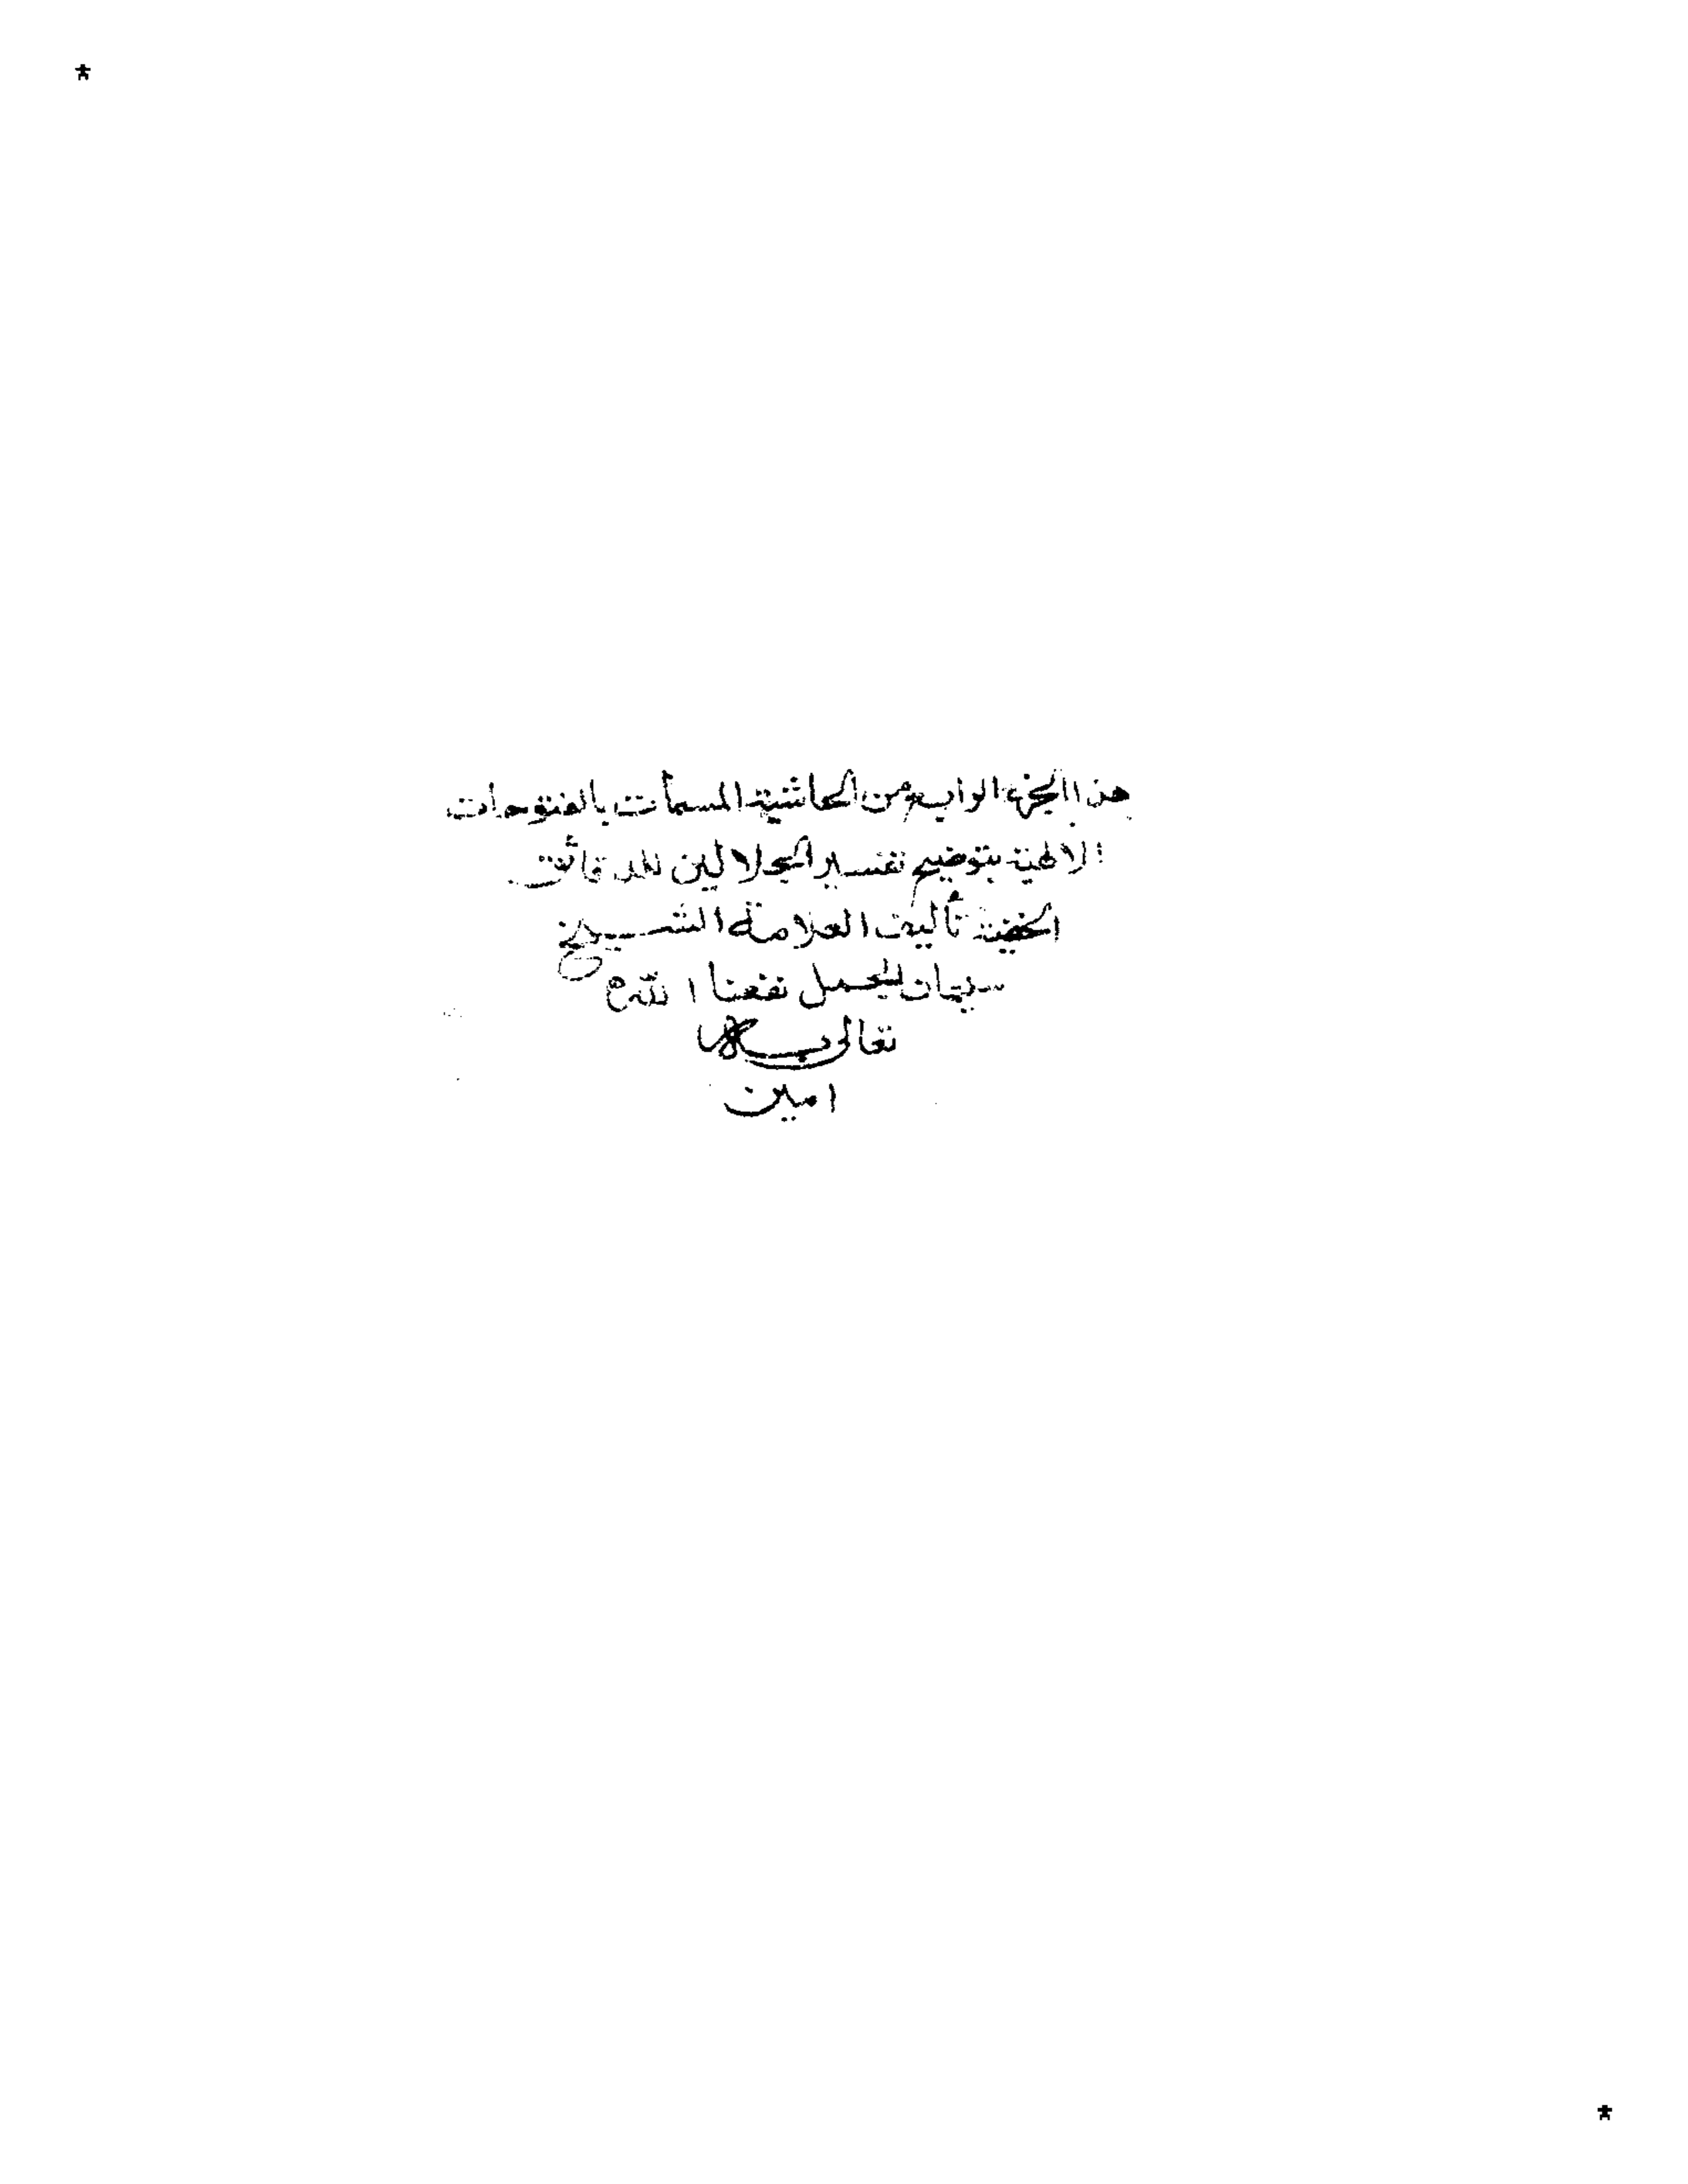 *
هذا الجزء الرابع من الحاشية المسمأت بالفتوحات
الالهية بتوضيح تفسير الجلالين للدقائق
الخفية تأليف العلامة الشيخ
سليمان الجمل نفعنا الله
تعالى به
امين
*